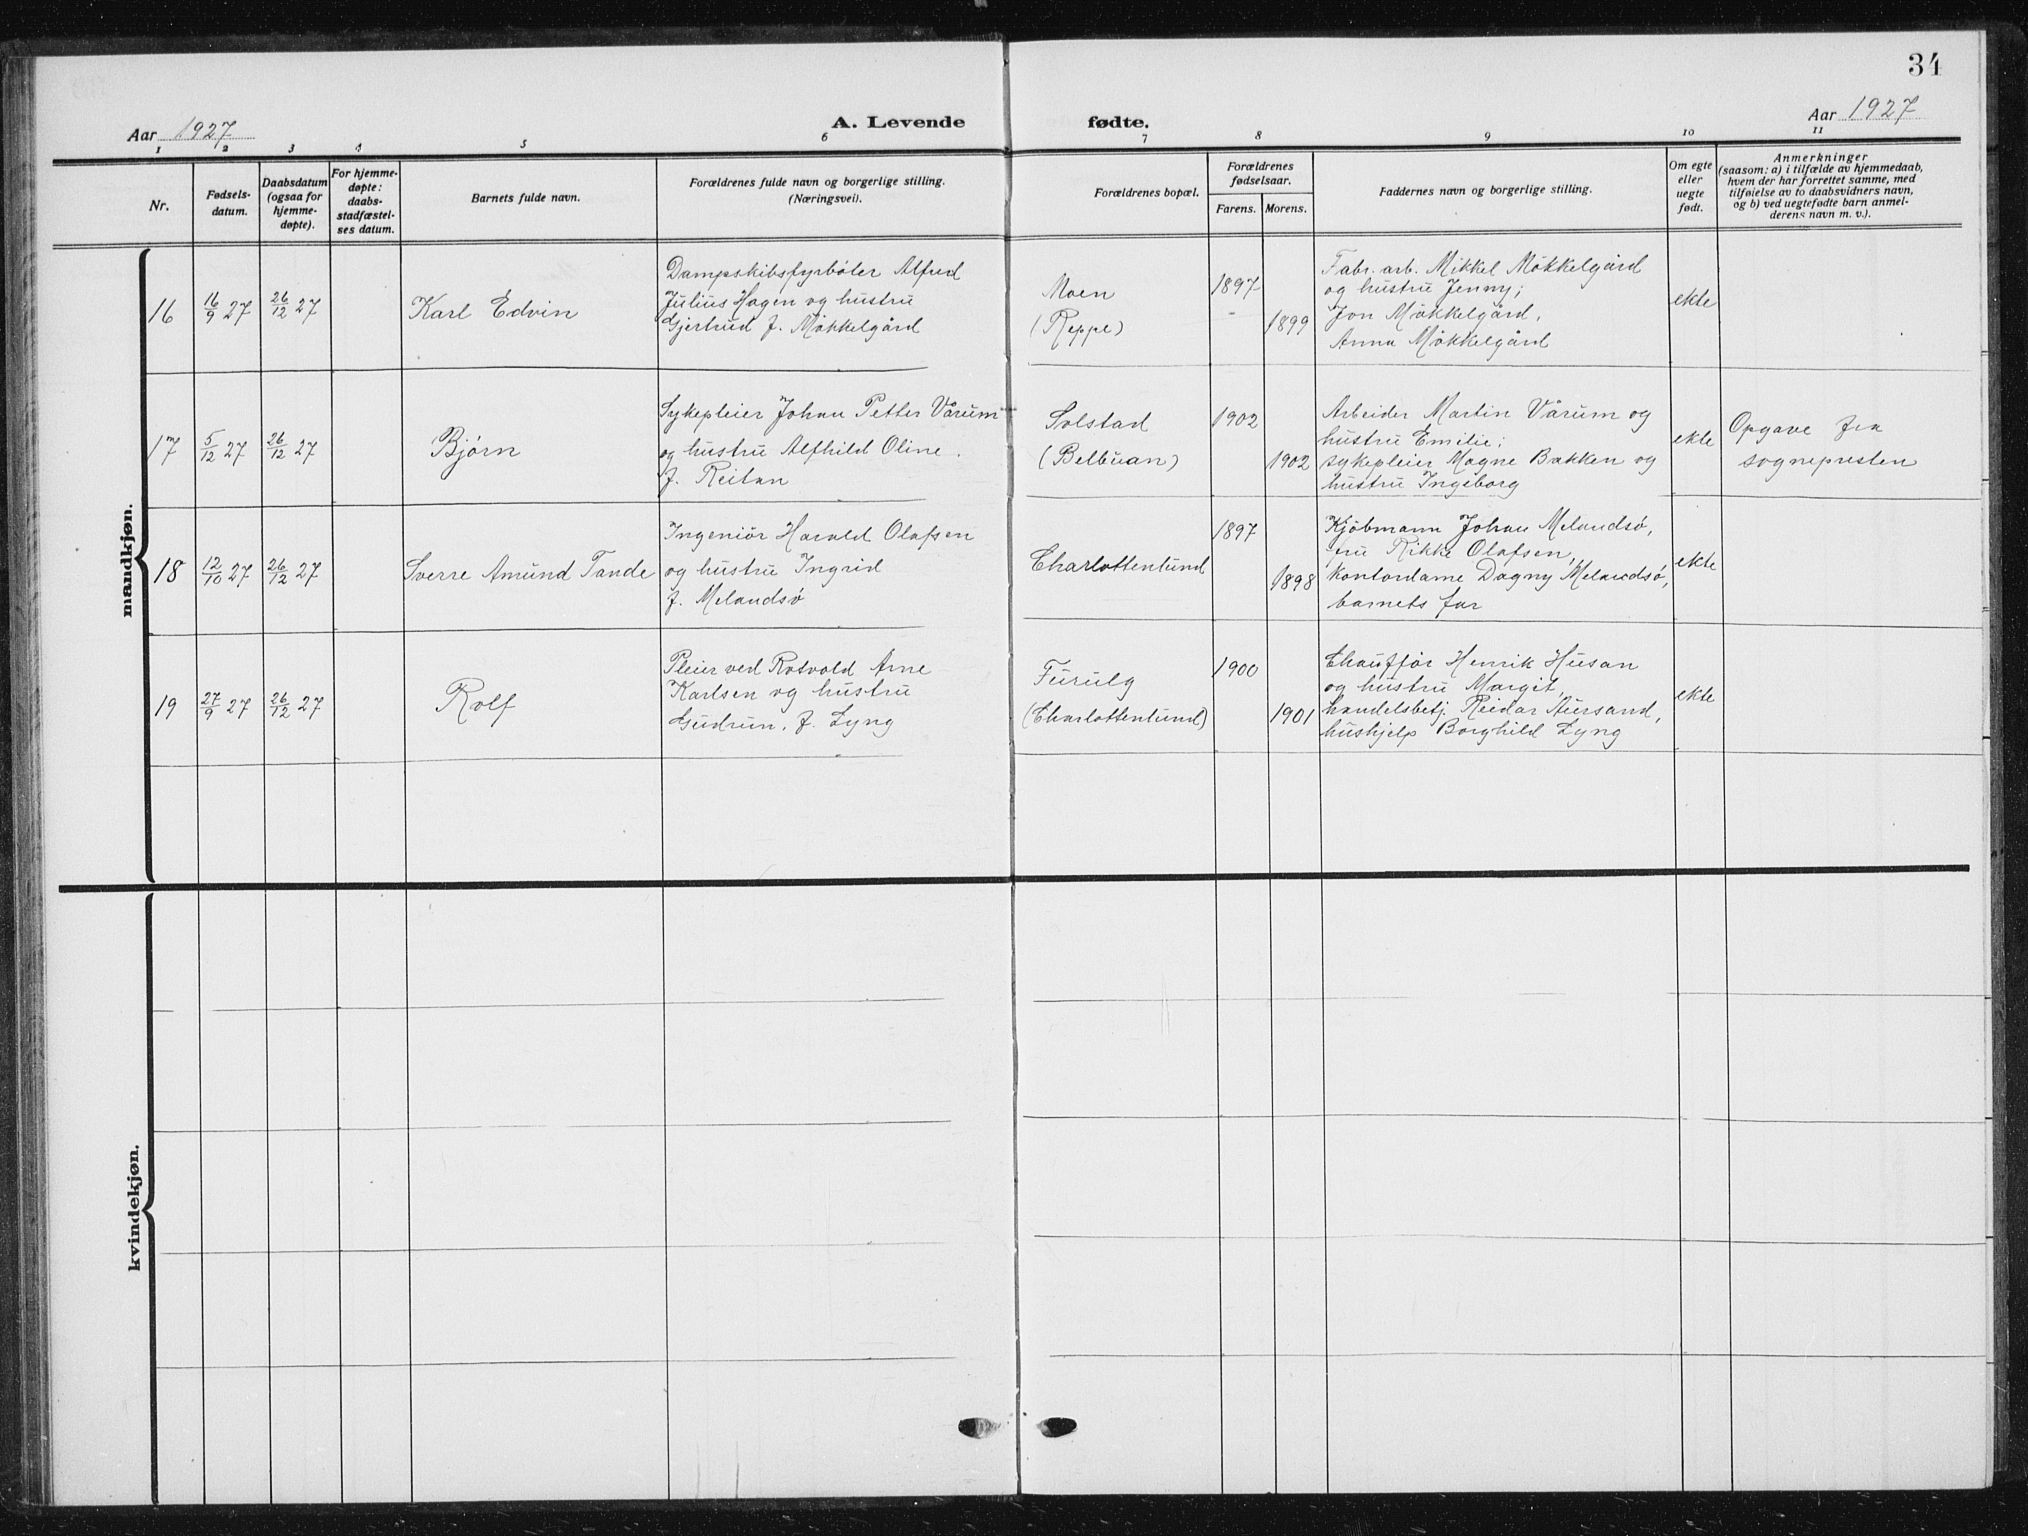 34
Aar 1927
A. Levende
fødte.
Aar 1927
1 2 3 4 5 6 7 8 9 10 11
Nr.
Fødsels-
datum.
Daabsdatum
(ogsaa for
hjemme-
døpte).
For hjemme-
døpte:
daabs-
stadfæstel-
ses datum.
Barnets fulde navn.
Forældrenes fulde navn og borgerlige stilling.
(Næringsvei).
Forældrenes bopæl.
Forældrenes
fødselsaar.
Farens. Morens.
Faddernes navn og borgerlige stilling.
Om egte
eller
uegte
født.
Anmerkninger
(saasom: a) i tilfælde av hjemmedaab,
hvem der har forrettet samme, med
tilføielse av to daabsvidners navn,
og b) ved uegtefødte barn anmel-
derens navn m. v.).
mandkjøn.
16
16/9 27
26/12 27
Karl Edvin
Dampskibsfyrbøter Alfred
Julius Hagen og hustru
Gjertrud f. Møkkelgård
Moen
(Reppe)
1897
1899
Fabr. arb. Mikkel Møkkelgård
og hustru Jenny;
Jon Møkkelgård,
Anna Møkkelgård
ekte
17
5/12 27
26/12 27
Bjørn
Sykepleier Johan Petter Vårum
og hustru Alfhild Oline
f. Reitan
Solstad
(Belbuan)
1902
1902
Arbeider Martin Vårum og
hustru Emilie;
sykepleier Magne Bakken og
hustru Ingeborg
ekte
Opgave fra
sognepresten
18
12/10 27
26/12 27
Sverre Amund Tande
Ingeniør Harald Olafsen
og hustru Ingrid
f. Melandsø
Charlottenlund
1897
1898
Kjøbmann Johan Melandsø,
fru Rikke Olafsen,
kontordame Dagny Melandsø,
barnets far
ekte
19
27/9 27
26/12 27
Rolf
Pleier ved Rotvold Arne
Karlsen og hustru
Gudrun, f. Lyng
Furulg
(Charlottenlund)
1900
1901
Chauffør Henrik Husan
og hustru Margit,
handelsbetj. Reidar Aursand,
hushjelp Borghild Lyng
ekte
kvindekjøn.